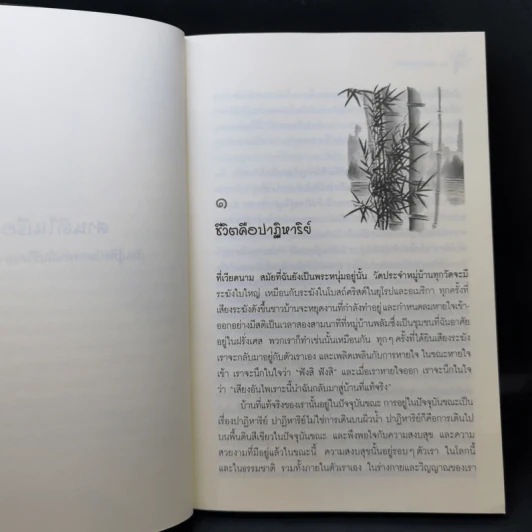 ๑
ชีวิตคือปาฏิหาริย์
ที่เวียดนาม สมัยที่ฉันยังเป็นพระหนุ่มอยู่นั้น วัดประจำหมู่บ้านทุกวัดจะมี
ระฆังใบใหญ่ เหมือนกับระฆังในโบสถ์คริสต์ในยุโรปและอเมริกา ทุกครั้งที่
เสียงระฆังดังขึ้นชาวบ้านจะหยุดงานที่กำลังทำอยู่ และกำหนดลมหายใจเข้า-
ออกอย่างมีสติเป็นเวลาสองสามนาทีที่หมู่บ้านพลัมซึ่งเป็นชุมชนที่ฉันอาศัย
อยู่ในฝรั่งเศส พวกเราก็ทำเช่นนั้นเหมือนกัน ทุกๆ ครั้งที่ได้ยินเสียงระฆัง
เราจะกลับมาอยู่กับตัวเราเอง และเพลิดเพลินกับการหายใจ ในขณะหายใจ
เข้า เราจะนึกในใจว่า “ฟังสิ ฟังสิ” และเมื่อเราหายใจออก เราจะนึกในใจ
ว่า “เสียงอันไพเราะนี้นำฉันกลับมาสู่บ้านที่แท้จริง”
บ้านที่แท้จริงของเรานั้นอยู่ในปัจจุบันขณะ การอยู่ในปัจจุบันขณะเป็น
เรื่องปาฏิหาริย์ ปาฏิหาริย์ไม่ใช่การเดินบนผิวน้ำ ปาฏิหาริย์ก็คือการเดินไป
บนพื้นดินสีเขียวในปัจจุบันขณะ และพึงพอใจกับความสงบสุข และความ
สวยงามที่มีอยู่แล้วในขณะนี้ ความสงบสุขนั้นอยู่รอบๆ ตัวเรา ในโลกนี้
และในธรรมชาติ รวมทั้งภายในตัวเราเอง ในร่างกายและวิญญาณของเรา